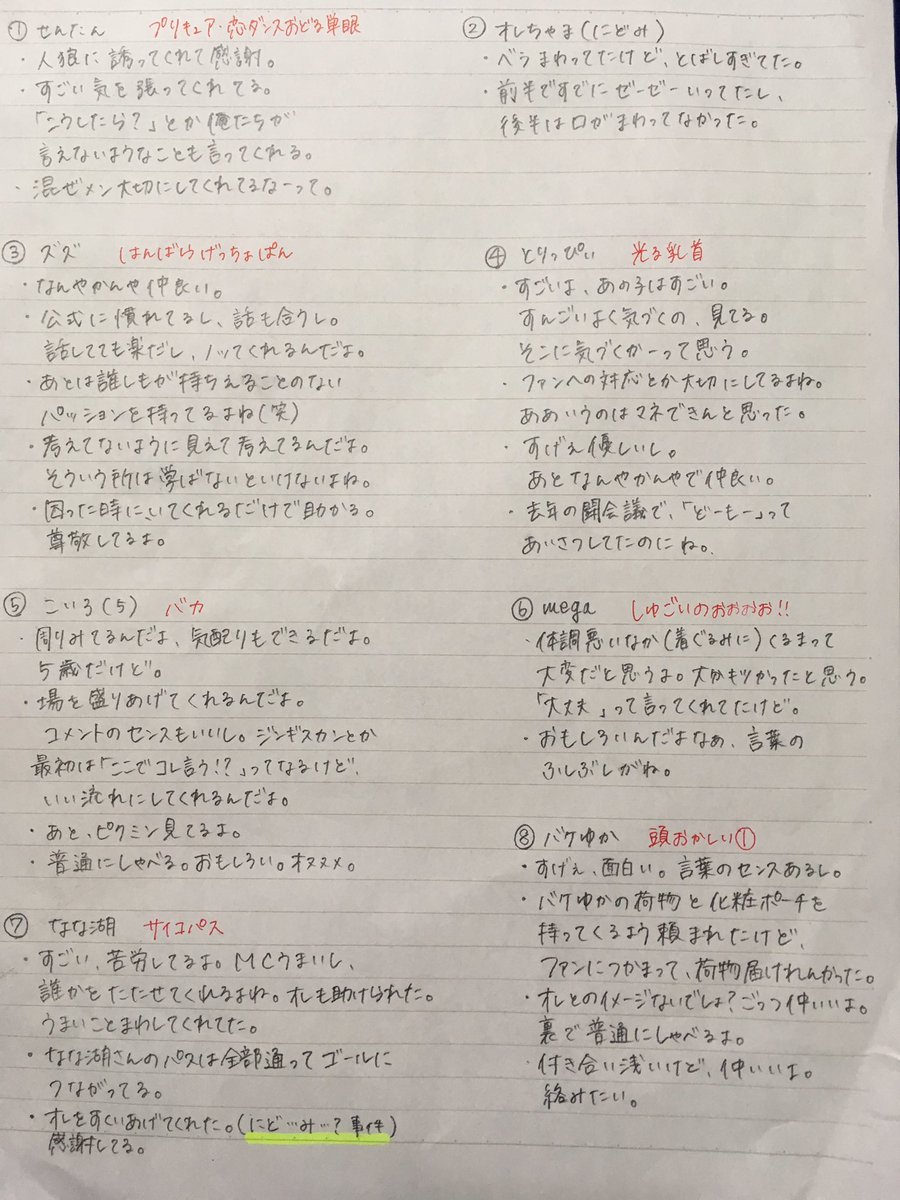 ① せんたん　プリキュア・恋ダンスおどる単眼
・人狼に誘ってくれて感謝。
・すごい気を張ってくれてる。
「こうしたら?」とか俺たちが
言えないようなことも言ってくれる。
・混ぜメン大切にしてくれてるなーって。
② オレちゃま(にどみ)
・ベラまわってたけど、とばしすぎてた。
・前半ですでにゼーゼーいってたし、
後半は口がまわってなかった。
③ ズズ　はんばらげっちょぱん
・なんやかんや仲良い。
・公式に慣れてるし、話も合うし。
話してても楽だし、ノッてくれるんだよ。
・あとは誰しもが持ちえることのない
パッションを持ってるよね(笑)
・考えてないように見えて考えてるんだよ。
そういう所は学ばないといけないよね。
・困った時にいてくれるだけで助かる。
尊敬してるよ。
④ とりっぴぃ　光る乳首
・すごいよ、あの子はすごい。
すんごいよく気づくの、見てる。
そこに気づくかーって思う。
・ファンへの対応とか大切にしてるよね。
ああいうのはマネできんと思った。
・すげえ優しいし。
あとなんやかんやで仲良い。
・去年の闘会議で、「どーもー」って
あいさつしてたのにね。
⑤ こいろ(5)　バカ
・周りみてるんだよ、気配りもできるだよ。
5歳だけど。
・場を盛りあげてくれるんだよ。
コメントのセンスもいいし。ジンギスカンとか
最初は「ここでコレ言う!?」ってなるけど、
いい流れにしてくれるんだよ。
・あと、ピクミン見てるよ。
・普通にしゃべる。おもしろい。オススメ。
⑥ mega　しゅごいのおおおお!!
・体調悪いなか(着ぐるみに)くるまって
大変だと思うよ。大分キツかったと思う。
「大丈夫」って言ってくれてたけど。
・おもしろいんだよなぁ、言葉の
ふしぶしがね。
⑦ なな湖　サイコパス
・すごい、苦労してるよ。MCうまいし、
誰かをたたせてくれるよね。オレも助けられた。
うまいことまわしてくれてた。
・なな湖さんのパスは全部通ってゴールに
つながってる。
・オレをすくいあげてくれた。(にど…み…?事件)
感謝してる。
⑧ バケゆか　頭おかしい①
・すげぇ、面白い。言葉のセンスあるし。
・バケゆかの荷物と化粧ポーチを
持ってくるよう頼まれたけど、
ファンにつかまって、荷物届けれんかった。
・オレとのイメージないでしょ?ごっつ仲いいよ。
裏で普通にしゃべるよ。
・付き合い浅いけど、仲いいよ。
絡みたい。